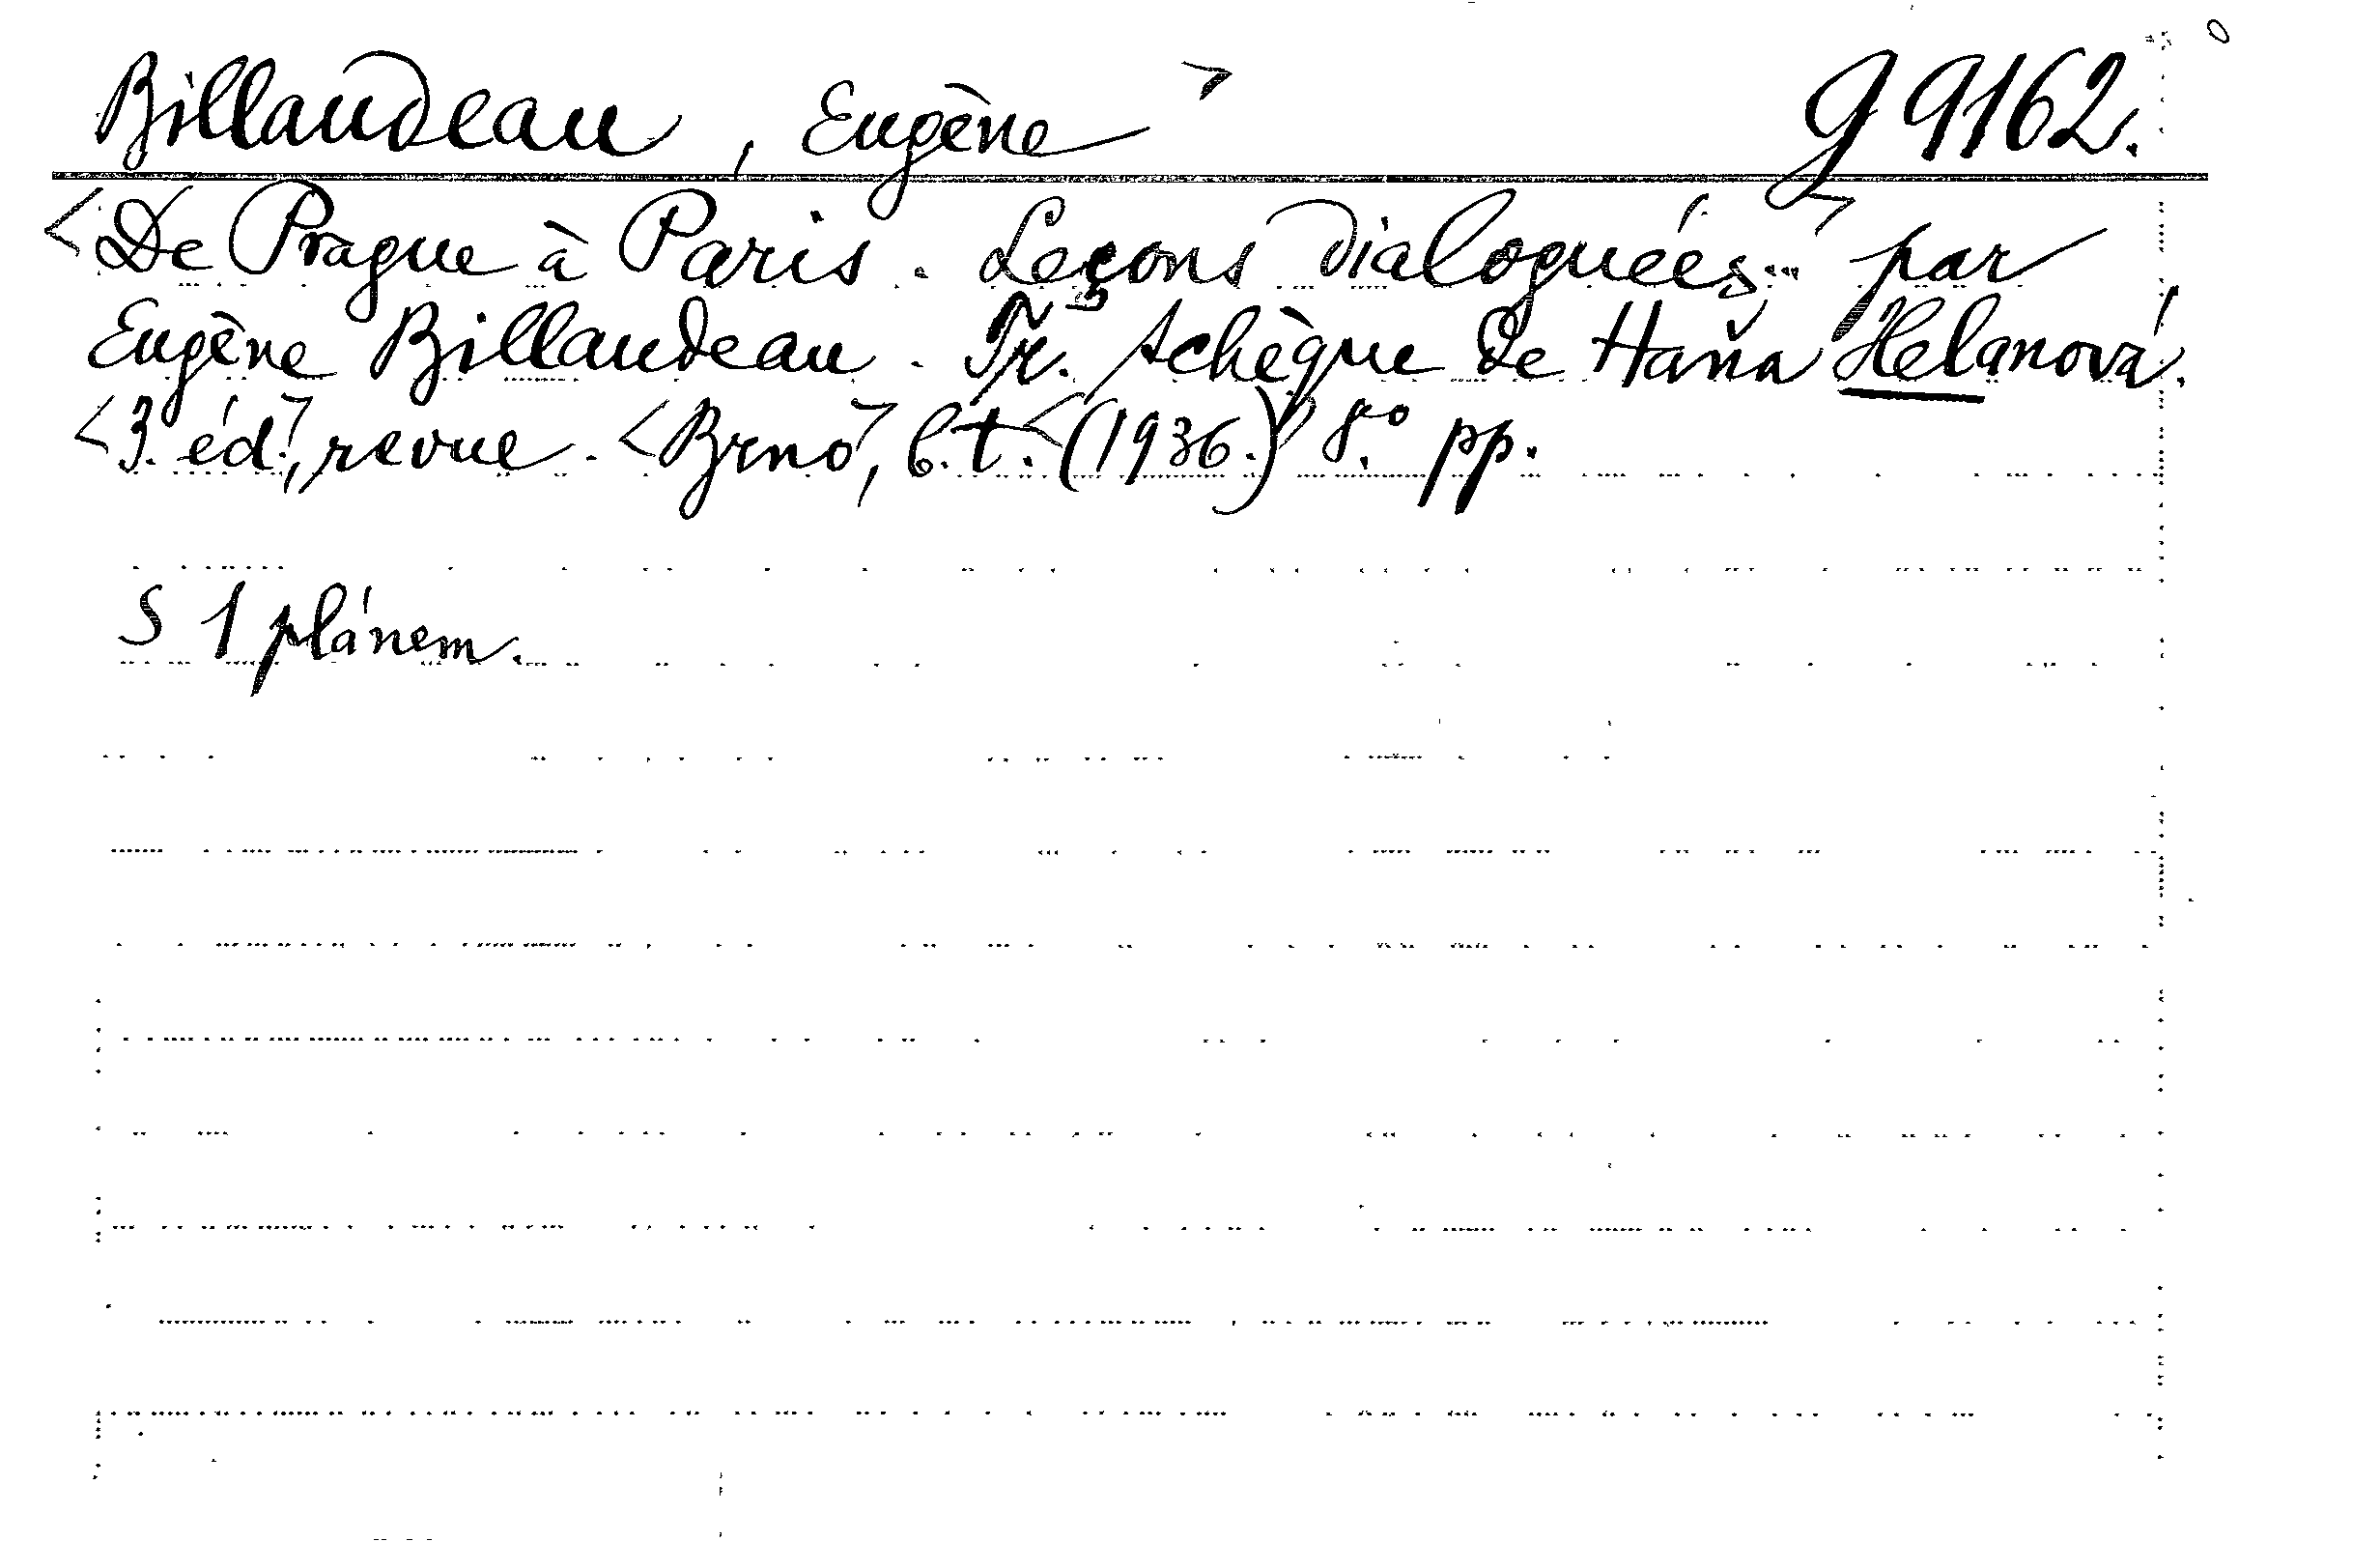 Billaudeau, Eugène> g 9162.
<De Prague à Paris. Leçons dialoguées> ... par
Eugène Billaudeau. Tr. tchèque de Haňa Helanová.
<3. éd.>, revue. <Brno>, b. t. <(1936.)> 8.° pp.
S 1 plánem.